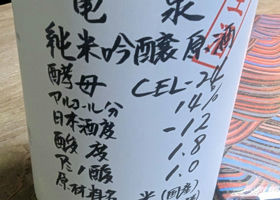 亀泉
純米吟醸原酒
酵母 CEL-24
アルコール分 14%
日本酒度 -12
酸度 1.8
アミノ酸 1.0
原材料名 米(国産)